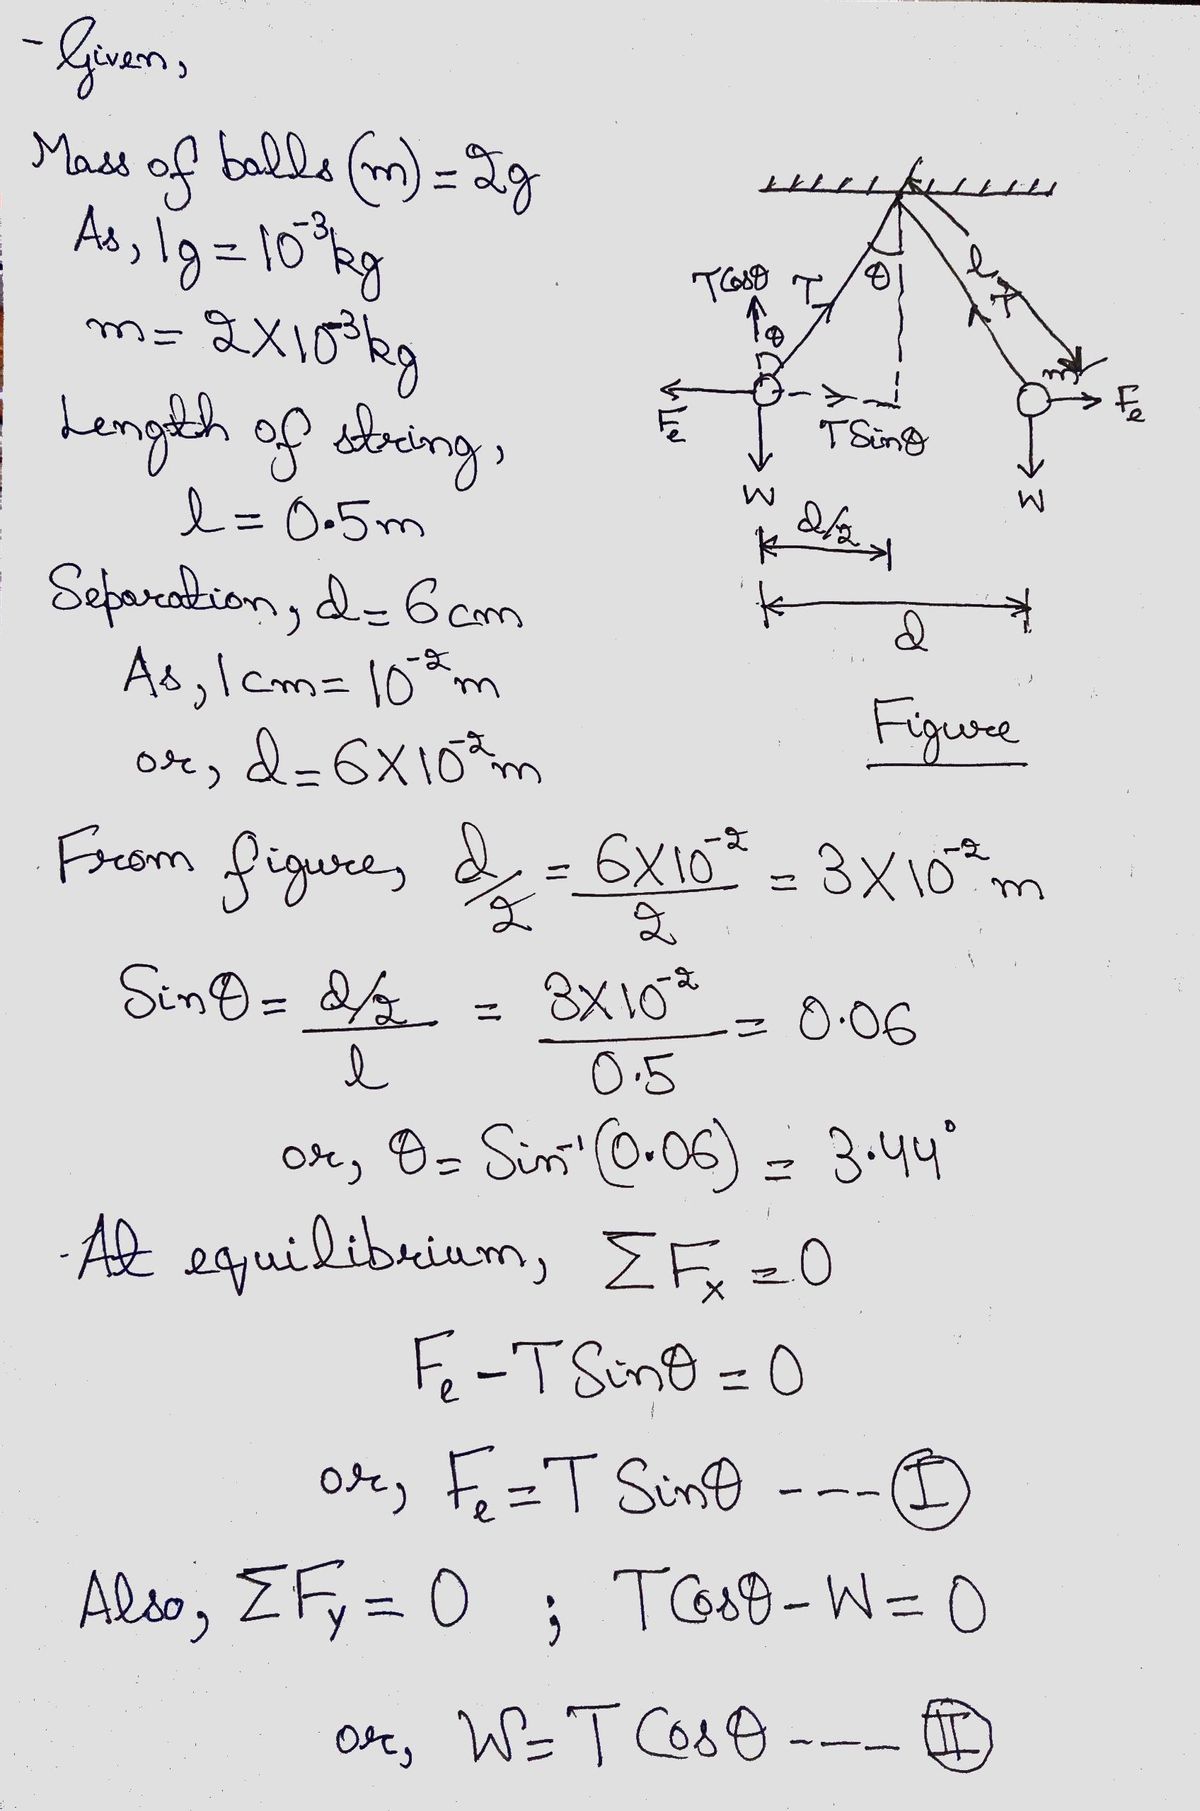 - Given,
Mass of balls (m) = 2g
As, 1g = 10⁻³kg
m = 2×10⁻³kg
Length of string,
l = 0.5m
Separation, d = 6cm
As, 1cm = 10⁻²m
or, d = 6×10⁻²m
TCosθ T θ l T
θ
m
Fe TSinθ Fe
W W
d/2
d
Figure
From figure, d/2 = 6×10⁻²/2 = 3×10⁻²m
Sinθ = d/2/l = 3×10⁻²/0.5 = 0.06
or, θ = Sin⁻¹(0.06) = 3.44°
- At equilibrium, ΣFx = 0
Fe - TSinθ = 0
or, Fe = T Sinθ ---- I
Also, ΣFy = 0 ; TCosθ - W = 0
or, W = T Cosθ ---- II